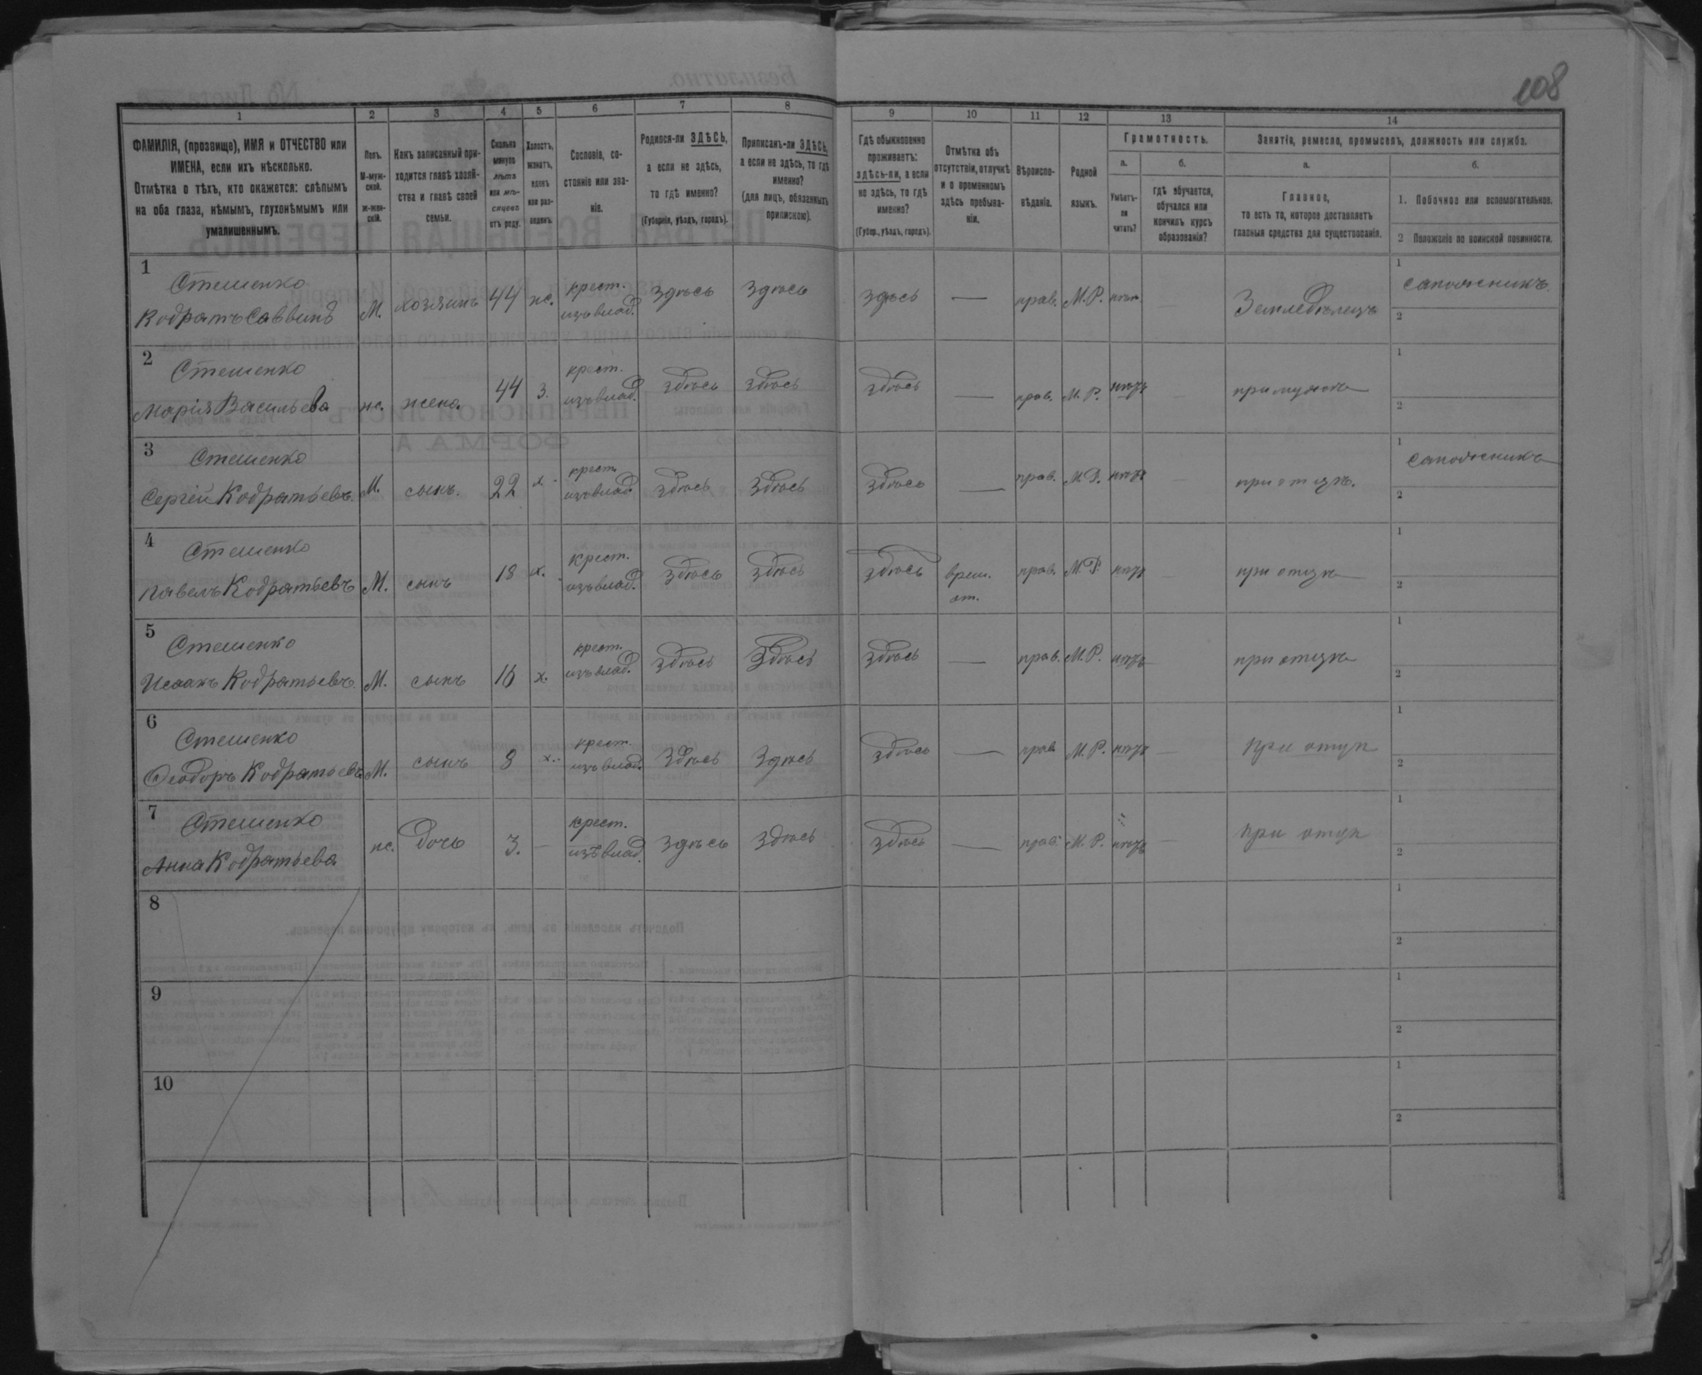 108
1 2 3 4 5 6 7 8 9 10 11 12 13 14
ФАМИЛІЯ, (прозвище), ИМЯ и ОТЧЕСТВО или
ИМЕНА, если ихъ нѣсколько.
Отмѣтка о тѣхъ, кто окажется: слѣпымъ
на оба глаза, нѣмымъ, глухонѣмымъ или
умалишеннымъ.
Полъ.
М-муж-
ской.
ж-жен-
скій.
Какъ записанный при-
ходится главѣ хозяй-
ства и главѣ своей
семьи.
Сколько
минуло
лѣтъ
или мѣ-
сяцевъ
отъ роду.
Холостъ,
женатъ,
вдовъ
или раз-
веденъ.
Сословіе, со-
стояніе или зва-
ніе.
Родился-ли ЗДѢСЬ,
а если не здѣсь,
то гдѣ именно?
(Губернія, уѣздъ, городъ).
Приписанъ-ли ЗДѢСЬ,
а если не здѣсь, то гдѣ
именно?
(для лицъ, обязанныхъ
припискою).
Гдѣ обыкновенно
проживаетъ:
здѣсь-ли, а если
не здѣсь, то гдѣ
именно?
(Губер., уѣздъ, городъ).
Отмѣтка объ
отсутствіи, отлучкѣ
и о временномъ
здѣсь пребыва-
ніи.
Вѣроиспо-
вѣданіе.
Родной
языкъ.
Грамотность.
а.
Умѣетъ-
ли
читать?
б.
гдѣ обучается,
обучался или
кончилъ курсъ
образованія?
Занятіе, ремесло, промыселъ, должность или служба.
а.
Главное,
то есть то, которое доставляетъ
главныя средства для существованія.
б.
1. Побочное или вспомогательное.
2 Положеніе по воинской повинности.
1
Стешенко
Кодратъ Саввинъ М. хозяинъ 44 ж. крест. изъ влад. здѣсь здѣсь здѣсь — прав. М.Р. Земледѣлецъ
1 сапожникъ
2
2
Стешенко
Марія Васильева ж. жена 44 з. крест. изъ влад. здѣсь здѣсь здѣсь — прав. М.Р. нѣтъ при мужѣ
1
2
3
Стешенко
Сергѣй Кодратьевъ М. сынъ. 22 х. крест. изъ влад. здѣсь здѣсь здѣсь — прав. М.Р. нѣтъ при отцѣ.
1 сапожникъ
2
4
Стешенко
Павелъ Кодратьевъ М. сынъ 18 х. крест. изъ влад. здѣсь здѣсь здѣсь врем. от. прав. М.Р. нѣтъ при отцѣ
1
2
5
Стешенко
Исаакъ Кодратьевъ М. сынъ 16 х. крест. изъ влад. здѣсь здѣсь здѣсь — прав. М.Р. нѣтъ при отцѣ
1
2
6
Стешенко
Ѳеодоръ Кодратьевъ М. сынъ 8 х. крест. изъ влад. здѣсь здѣсь здѣсь — прав. М.Р. нѣтъ При отцѣ
1
2
7
Стешенко
Анна Кодратьева ж. дочь 3. — крест. изъ влад. здѣсь здѣсь здѣсь — прав. М.Р. нѣтъ При отцѣ
1
2
8
1
2
9
1
2
10
1
2